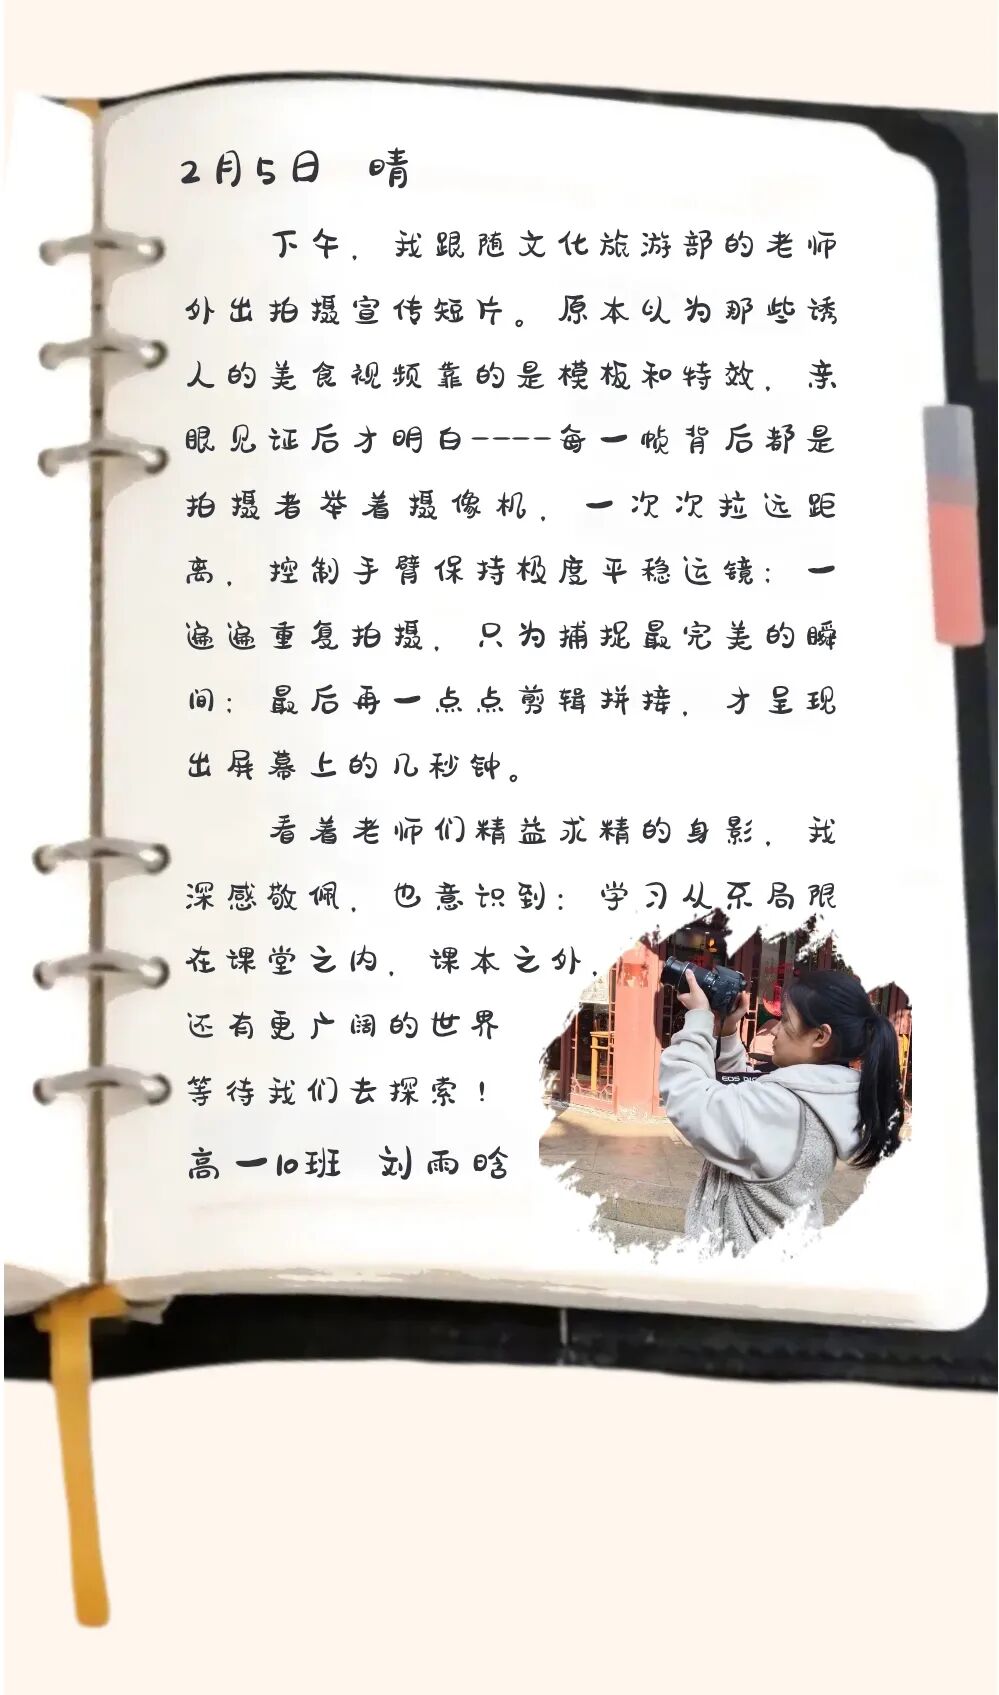 2月5日 晴
下午，我跟随文化旅游部的老师
外出拍摄宣传短片。原本以为那些诱
人的美食视频靠的是模板和特效，亲
眼见证后才明白----每一帧背后都是
拍摄者举着摄像机，一次次拉远距
离，控制手臂保持极度平稳运镜；一
遍遍重复拍摄，只为捕捉最完美的瞬
间；最后再一点点剪辑拼接，才呈现
出屏幕上的几秒钟。
看着老师们精益求精的身影，我
深感敬佩，也意识到：学习从不局限
在课堂之内，课本之外，
还有更广阔的世界
等待我们去探索！
高一10班 刘雨晗
EOS DIG